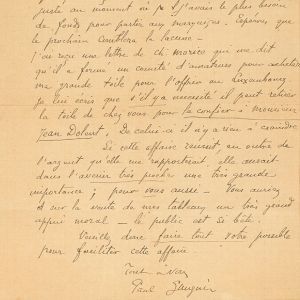 juste au moment où je j'avais le plus besoin
de fonds pour partir aux marquises. Espérons que
le prochain comblera la lacune.
J'ai reçu une lettre de ch. morice qui me dit
qu'il a formé un comité d'amateurs pour acheter
ma grande toile pour l'offrir au Luxembourg.
Je lui écris que s'il y a nécessité il peut retirer
la toile de chez vous pour la confier à monsieur
Jean Dolent. De celui-ci il n'y a rien à craindre
Si cette affaire réussit, en outre de
l'argent qu'elle me rapporterait elle aurait
dans l'avenir très proche une très grande
importance; pour vous aussi – Vous auriez
sur la vente de mes tableaux un très grand
appui moral – le public est si bête.
Veuillez donc faire tout votre possible
pour faciliter cette affaire.
Tout à vous
Paul Gauguin